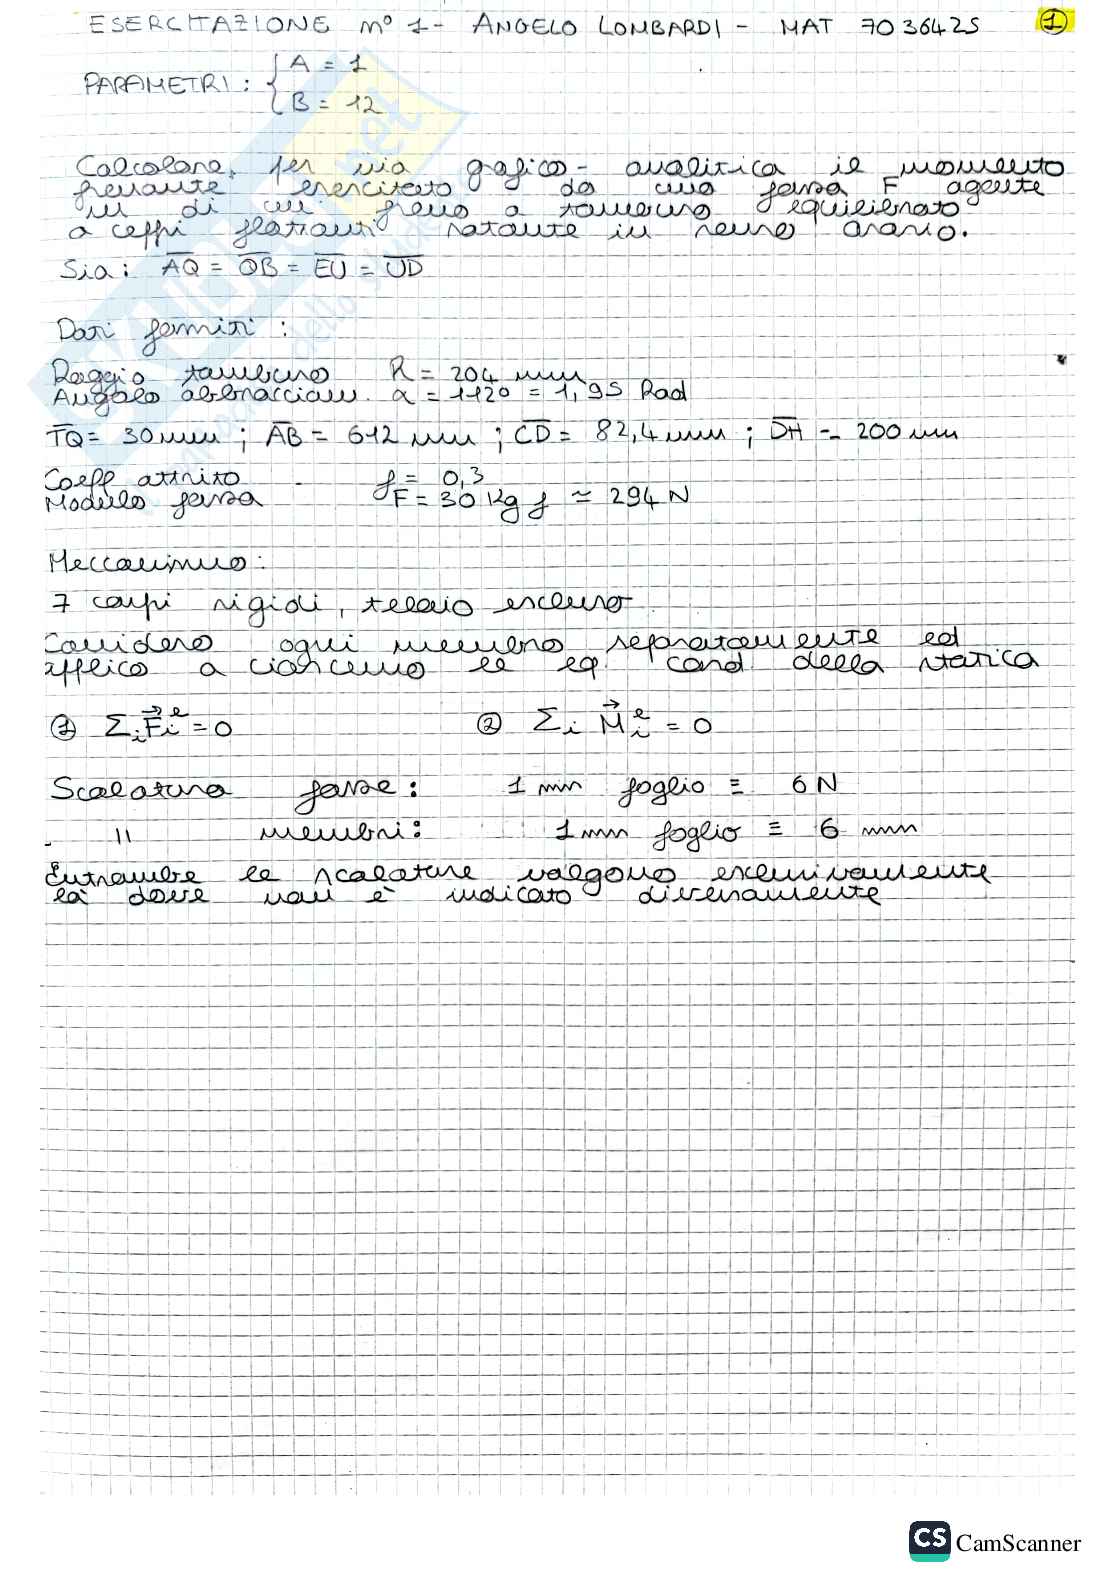 ESERCITAZIONE n° 1 - ANGELO LOMBARDI - MAT 7036425 1
PARAMETRI: { A = 1
B = 12
Calcolare, per via grafico-analitica il momento
frenante esercitato da una forza F agente
su di un freno a tamburo equilibrato
a ceppi flottanti rotante in senso orario.
Sia: AQ = QB = EU = UD
Dati forniti:
Raggio tamburo R = 204 mm
Angolo abbracciam. α = 112° = 1,95 Rad
TQ = 30 mm ; AB = 612 mm ; CD = 82,4 mm ; DH = 200 mm
Coeff attrito f = 0,3
Modulo forza F = 30 Kg f ≃ 294 N
Meccanismo:
7 corpi rigidi, telaio escluso
Considero ogni membro separatamente ed
applico a ciascuno le eq. card. della statica
① Σi Fi^e = 0 ② Σi Mi^e = 0
Scalatura forze: 1 mm foglio ≡ 6 N
" membri: 1 mm foglio ≡ 6 mm
Entrambe le scalature valgono esclusivamente
là dove non è indicato diversamente
CS CamScanner